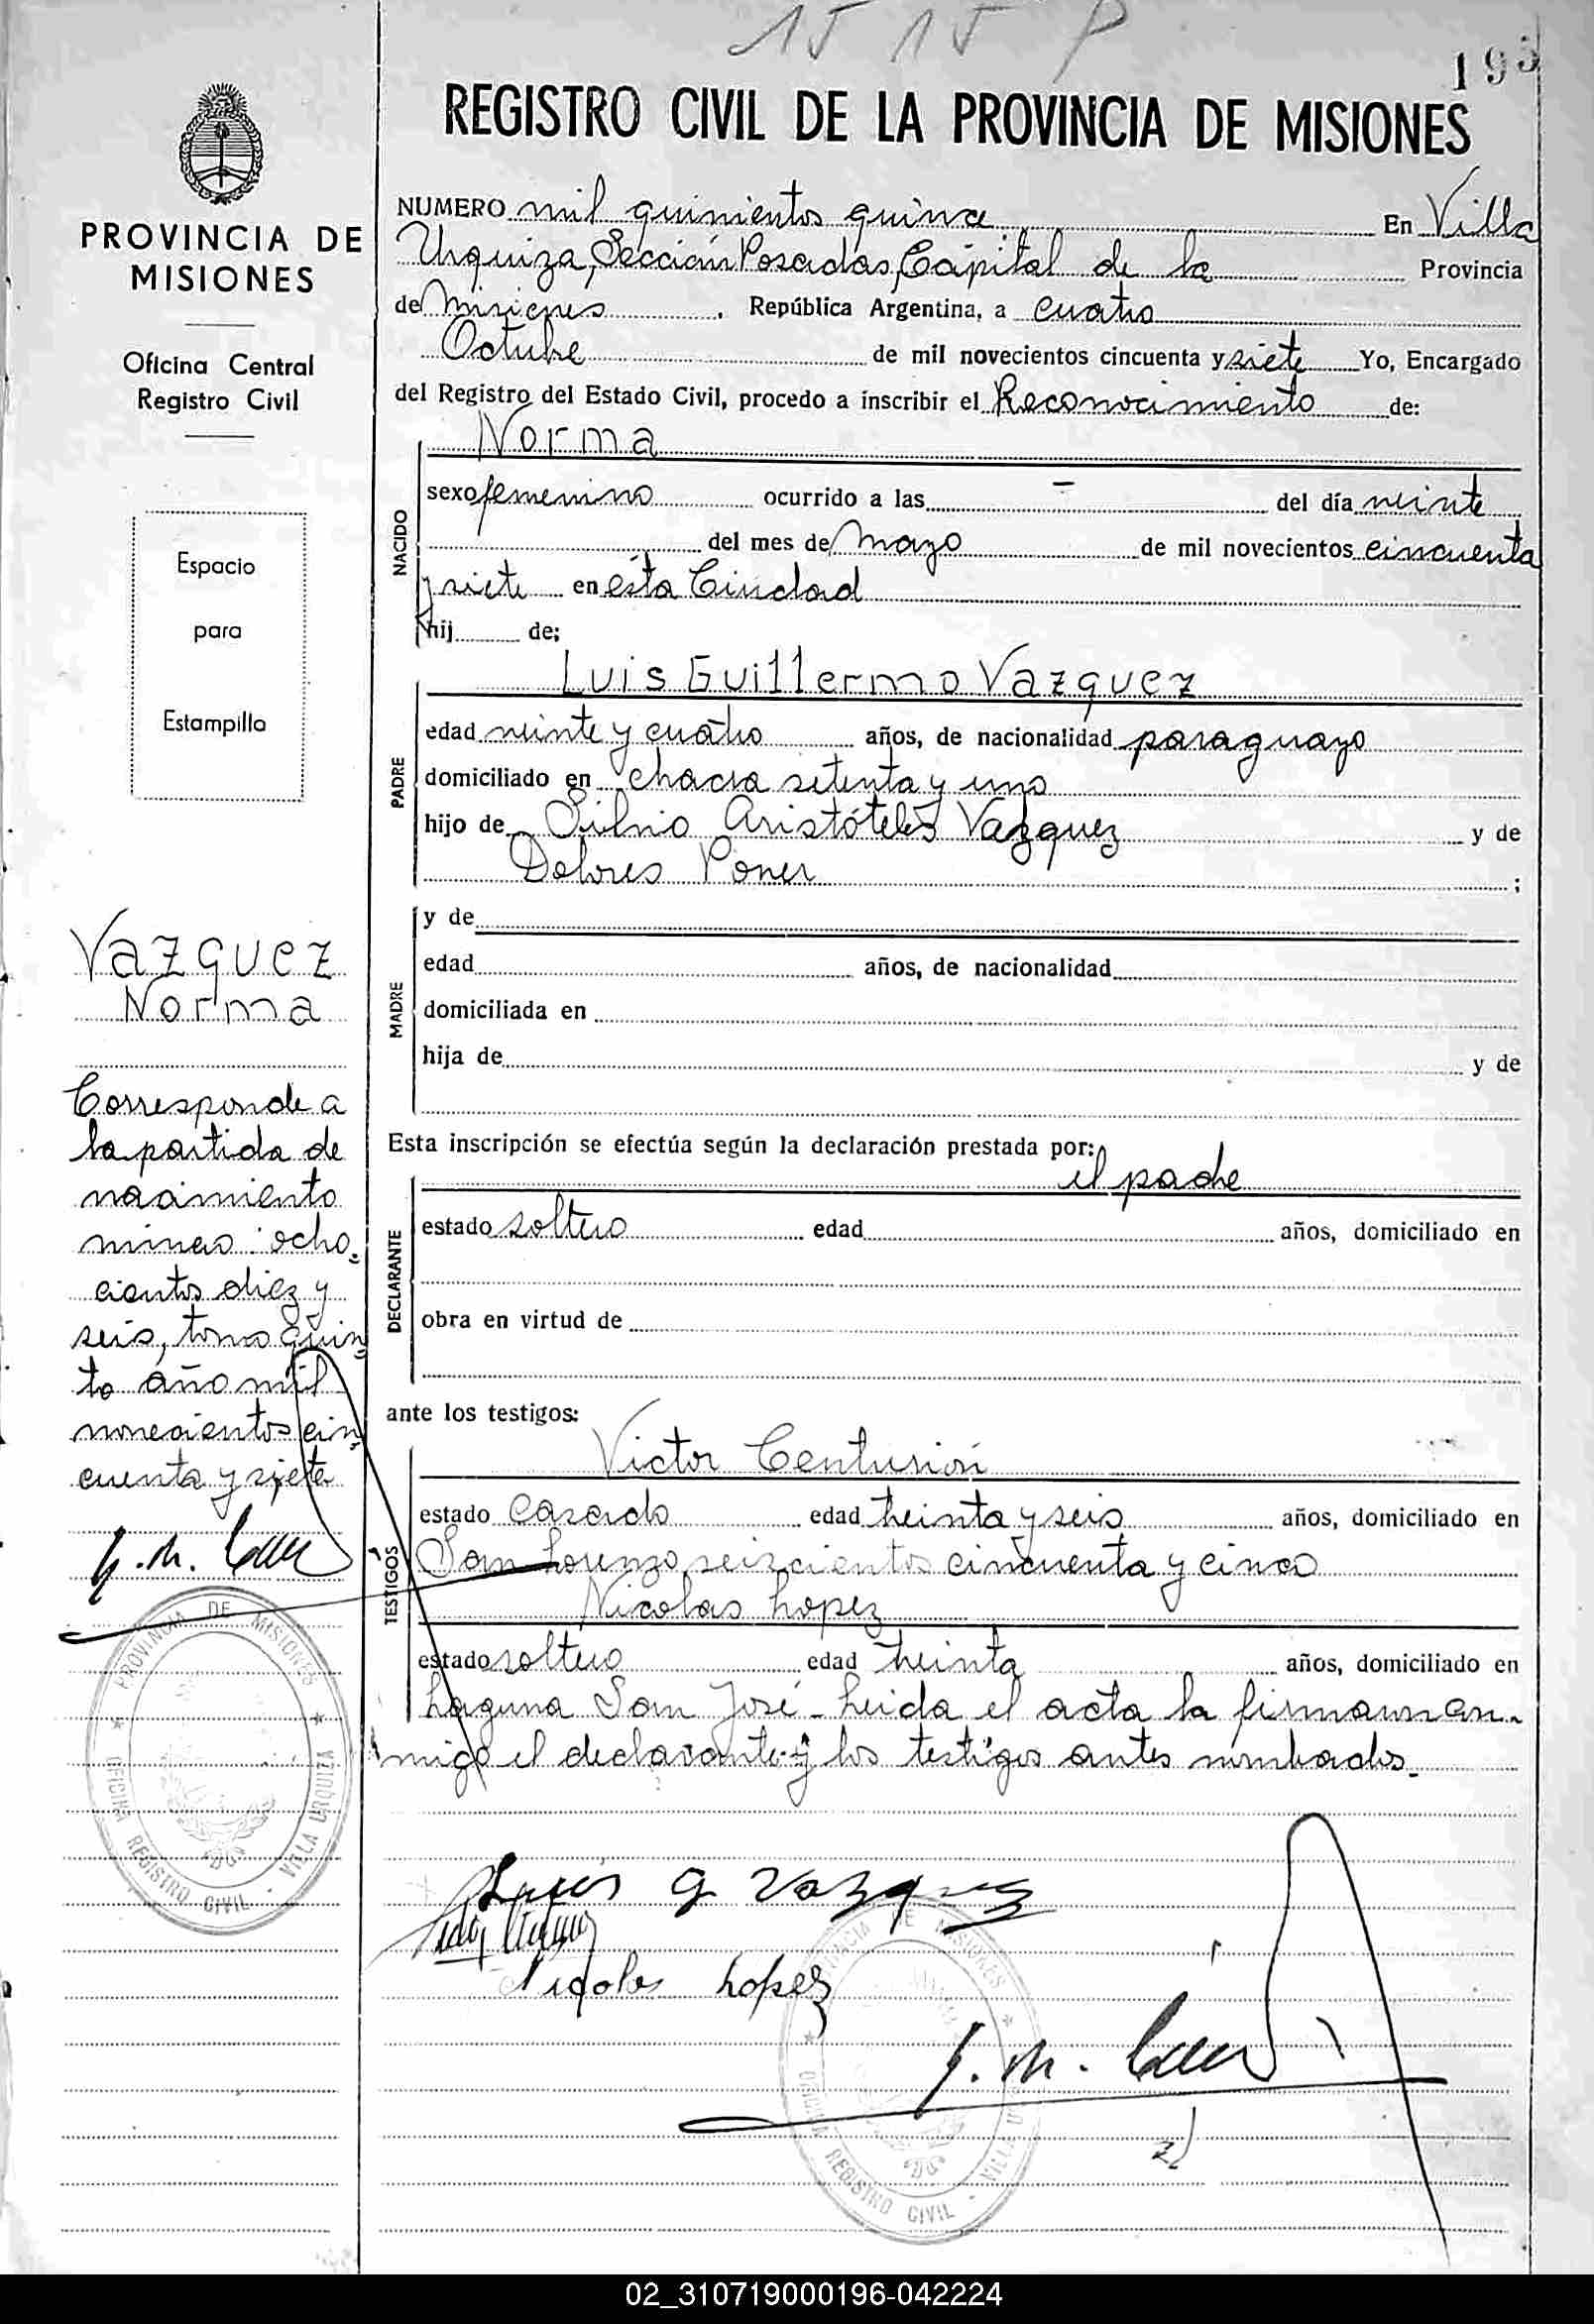 15 15 P
195
REGISTRO CIVIL DE LA PROVINCIA DE MISIONES
PROVINCIA DE
MISIONES
Oficina Central
Registro Civil
Espacio
para
Estampilla
NUMERO mil quinientos quince En Villa
Urquiza, Sección Posadas, Capital de la Provincia
de Misiones. República Argentina, a cuatro
Octubre de mil novecientos cincuenta y siete Yo, Encargado
del Registro del Estado Civil, procedo a inscribir el Reconocimiento de:
NACIDO
Norma
sexo femenino ocurrido a las - del día veinte
del mes de Mayo de mil novecientos cincuenta
y siete en ésta Ciudad
hij de:
PADRE
Luis Guillermo Vazquez
edad veinte y cuatro años, de nacionalidad paraguayo
domiciliado en chacra setenta y uno
hijo de Silvio Aristóteles Vazquez y de
Dolores Poner ;
MADRE
y de
edad años, de nacionalidad
domiciliada en
hija de y de
Vazquez
Norma
Corresponde a
la partida de
nacimiento
número ocho-
cientos diez y
seis, tomo quin-
to año mil
novecientos cin-
cuenta y siete
Esta inscripción se efectúa según la declaración prestada por:
el padre
DECLARANTE
estado soltero edad años, domiciliado en
obra en virtud de
ante los testigos:
TESTIGOS
Victor Centurión
estado casado edad treinta y seis años, domiciliado en
San Lorenzo seiscientos cincuenta y cinco
Nicolas Lopez
estado soltero edad treinta años, domiciliado en
Laguna San José - Leida el acta la firmaron con-
migo el declarante y los testigos antes nombrados.
PROVINCIA DE MISIONES
OFICINA REGISTRO CIVIL - VILLA URQUIZA
Luis G Vazquez
Nicolas Lopez
PROVINCIA DE MISIONES
OFICINA REGISTRO CIVIL - VILLA
02_310719000196-042224